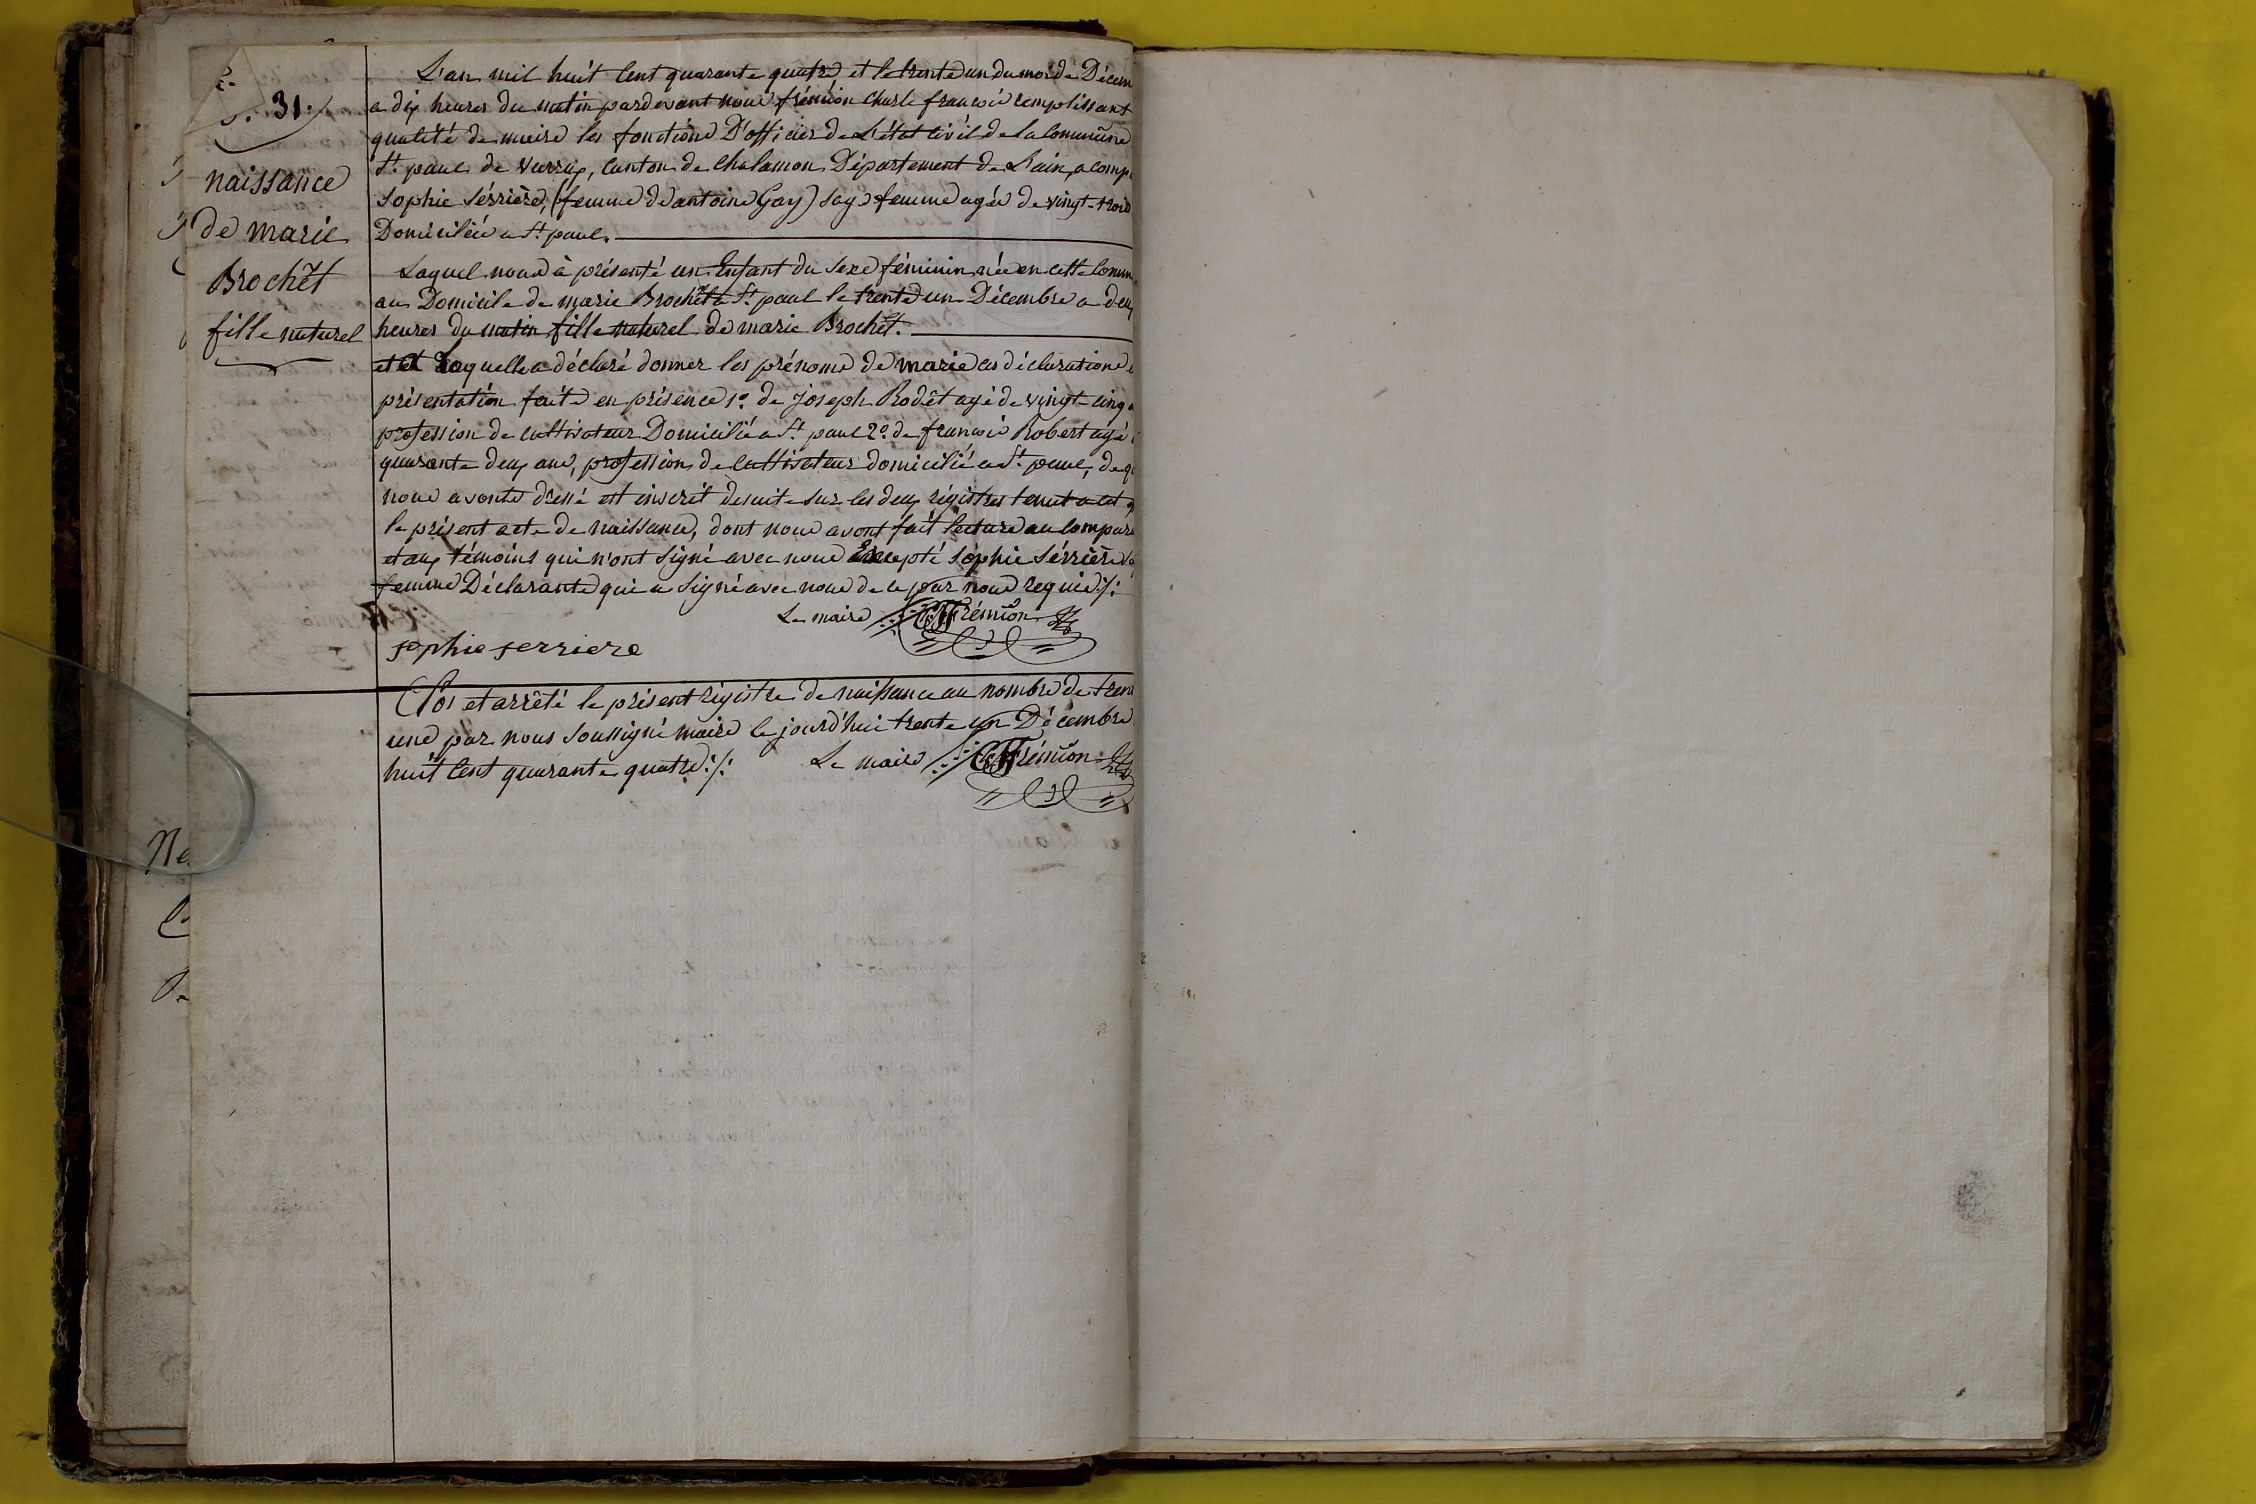 31.
naissance
de marie
Brochêt
fille naturel
L'an mil huit Cent quarante quatre, et le trente un du mois de Décem
a dix heures du matin pardevant nous frémion Charle francois remplissant
qualité de maire les fonctions D'officier de L'état Civil de la Commune
St. paul de Varax, Canton de Chalamon Département de L'ain, a comp
Sophie Sérrière, (femme de antoine Gay) sage femme agée de vingt-trois
Domiciliée a St. paul.
Laquel nous à présenté un Enfant du Sexe féminin née en cette Comm
au Domicile de marie Brochêt a St. paul le trente un Décembre a deux
heures du matin fille naturel de marie Brochêt.
et Laquelle a déclaré donner les prénoms de marie ces déclarations
présentation faite en présence 1o. de Joseph Rodêt agé de vingt-cinq
profession de cultivateur Domicilié a St. paul 2o. de francois Robert agé
quarante deux ans, profession de cultivateur domicilié a St. paul, de q
nous avonts dréssé est inscrit desuite sur les deux régistres tenut a cet
le présent acte de naissance, dont nous avont fait lecture au compara
et aux témoins qui n'ont signé avec nous Excepté Sophie Sérrière
femme Déclarante qui a signé avec nous de ce par nous requis ./.
Le maire CFrémion
sophie serriere
Clos et arrêté le présent régistre de naissance au nombre de tren
une par nous soussigné maire le jourd'hui trente un Décembre
huit Cent quarante quatre ./. Le maire CFrémion